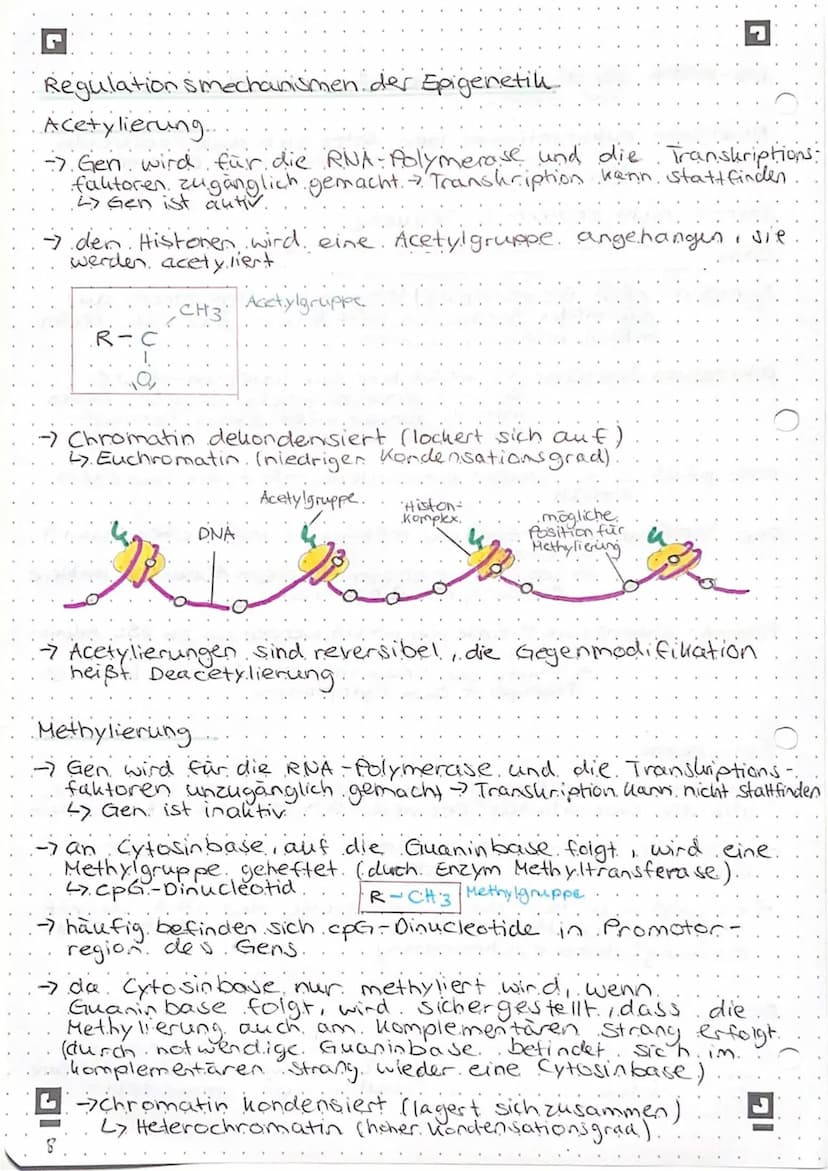 Regulationsmechanismen der Epigenetik
Acetylierung
→ Gen wird für die RNA-Polymerase und die Transkriptions-
faktoren zugänglich gemacht → Transkription kann stattfinden
↳ Gen ist aktiv
→ den Histonen wird eine Acetylgruppe angehangen, sie
werden acetyliert
CH3 Acetylgruppe
R-C
O
→ Chromatin dekondensiert (lockert sich auf)
↳ Euchromatin (niedriger Kondensationsgrad)
Acetylgruppe
DNA
Histon-
Komplex
mögliche
Position für
Methylierung
→ Acetylierungen sind reversibel, die Gegenmodifikation
heißt Deacetylierung
Methylierung
→ Gen wird für die RNA-Polymerase und die Transkriptions-
faktoren unzugänglich gemacht → Transkription kann nicht stattfinden
↳ Gen ist inaktiv
→ an Cytosinbase, auf die Guaninbase folgt, wird eine
Methylgruppe geheftet (duch Enzym Methyltransferase)
↳ cpG-Dinucleotid
R-CH3 Methylgruppe
→ häufig befinden sich cpG-Dinucleotide in Promotor-
region des Gens
→ da Cytosinbase nur methyliert wird, wenn
Guaninbase folgt, wird sichergestellt, dass die
Methylierung auch am komplementären Strang erfolgt
(durch notwendige Guaninbase befindet sich im
komplementären Strang wieder eine Cytosinbase)
→ Chromatin kondensiert (lagert sich zusammen)
↳ Heterochromatin (hoher Kondensationsgrad)
8